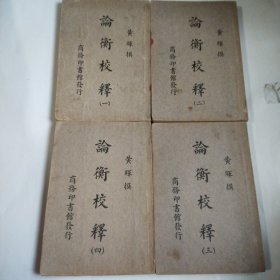 黃暉撰
論衡校釋(一)
商務印書館發行
黃暉撰
論衡校釋(二)
商務印書館發行
黃暉撰
論衡校釋(四)
商務印書館發行
黃暉撰
論衡校釋(三)
商務印書館發行